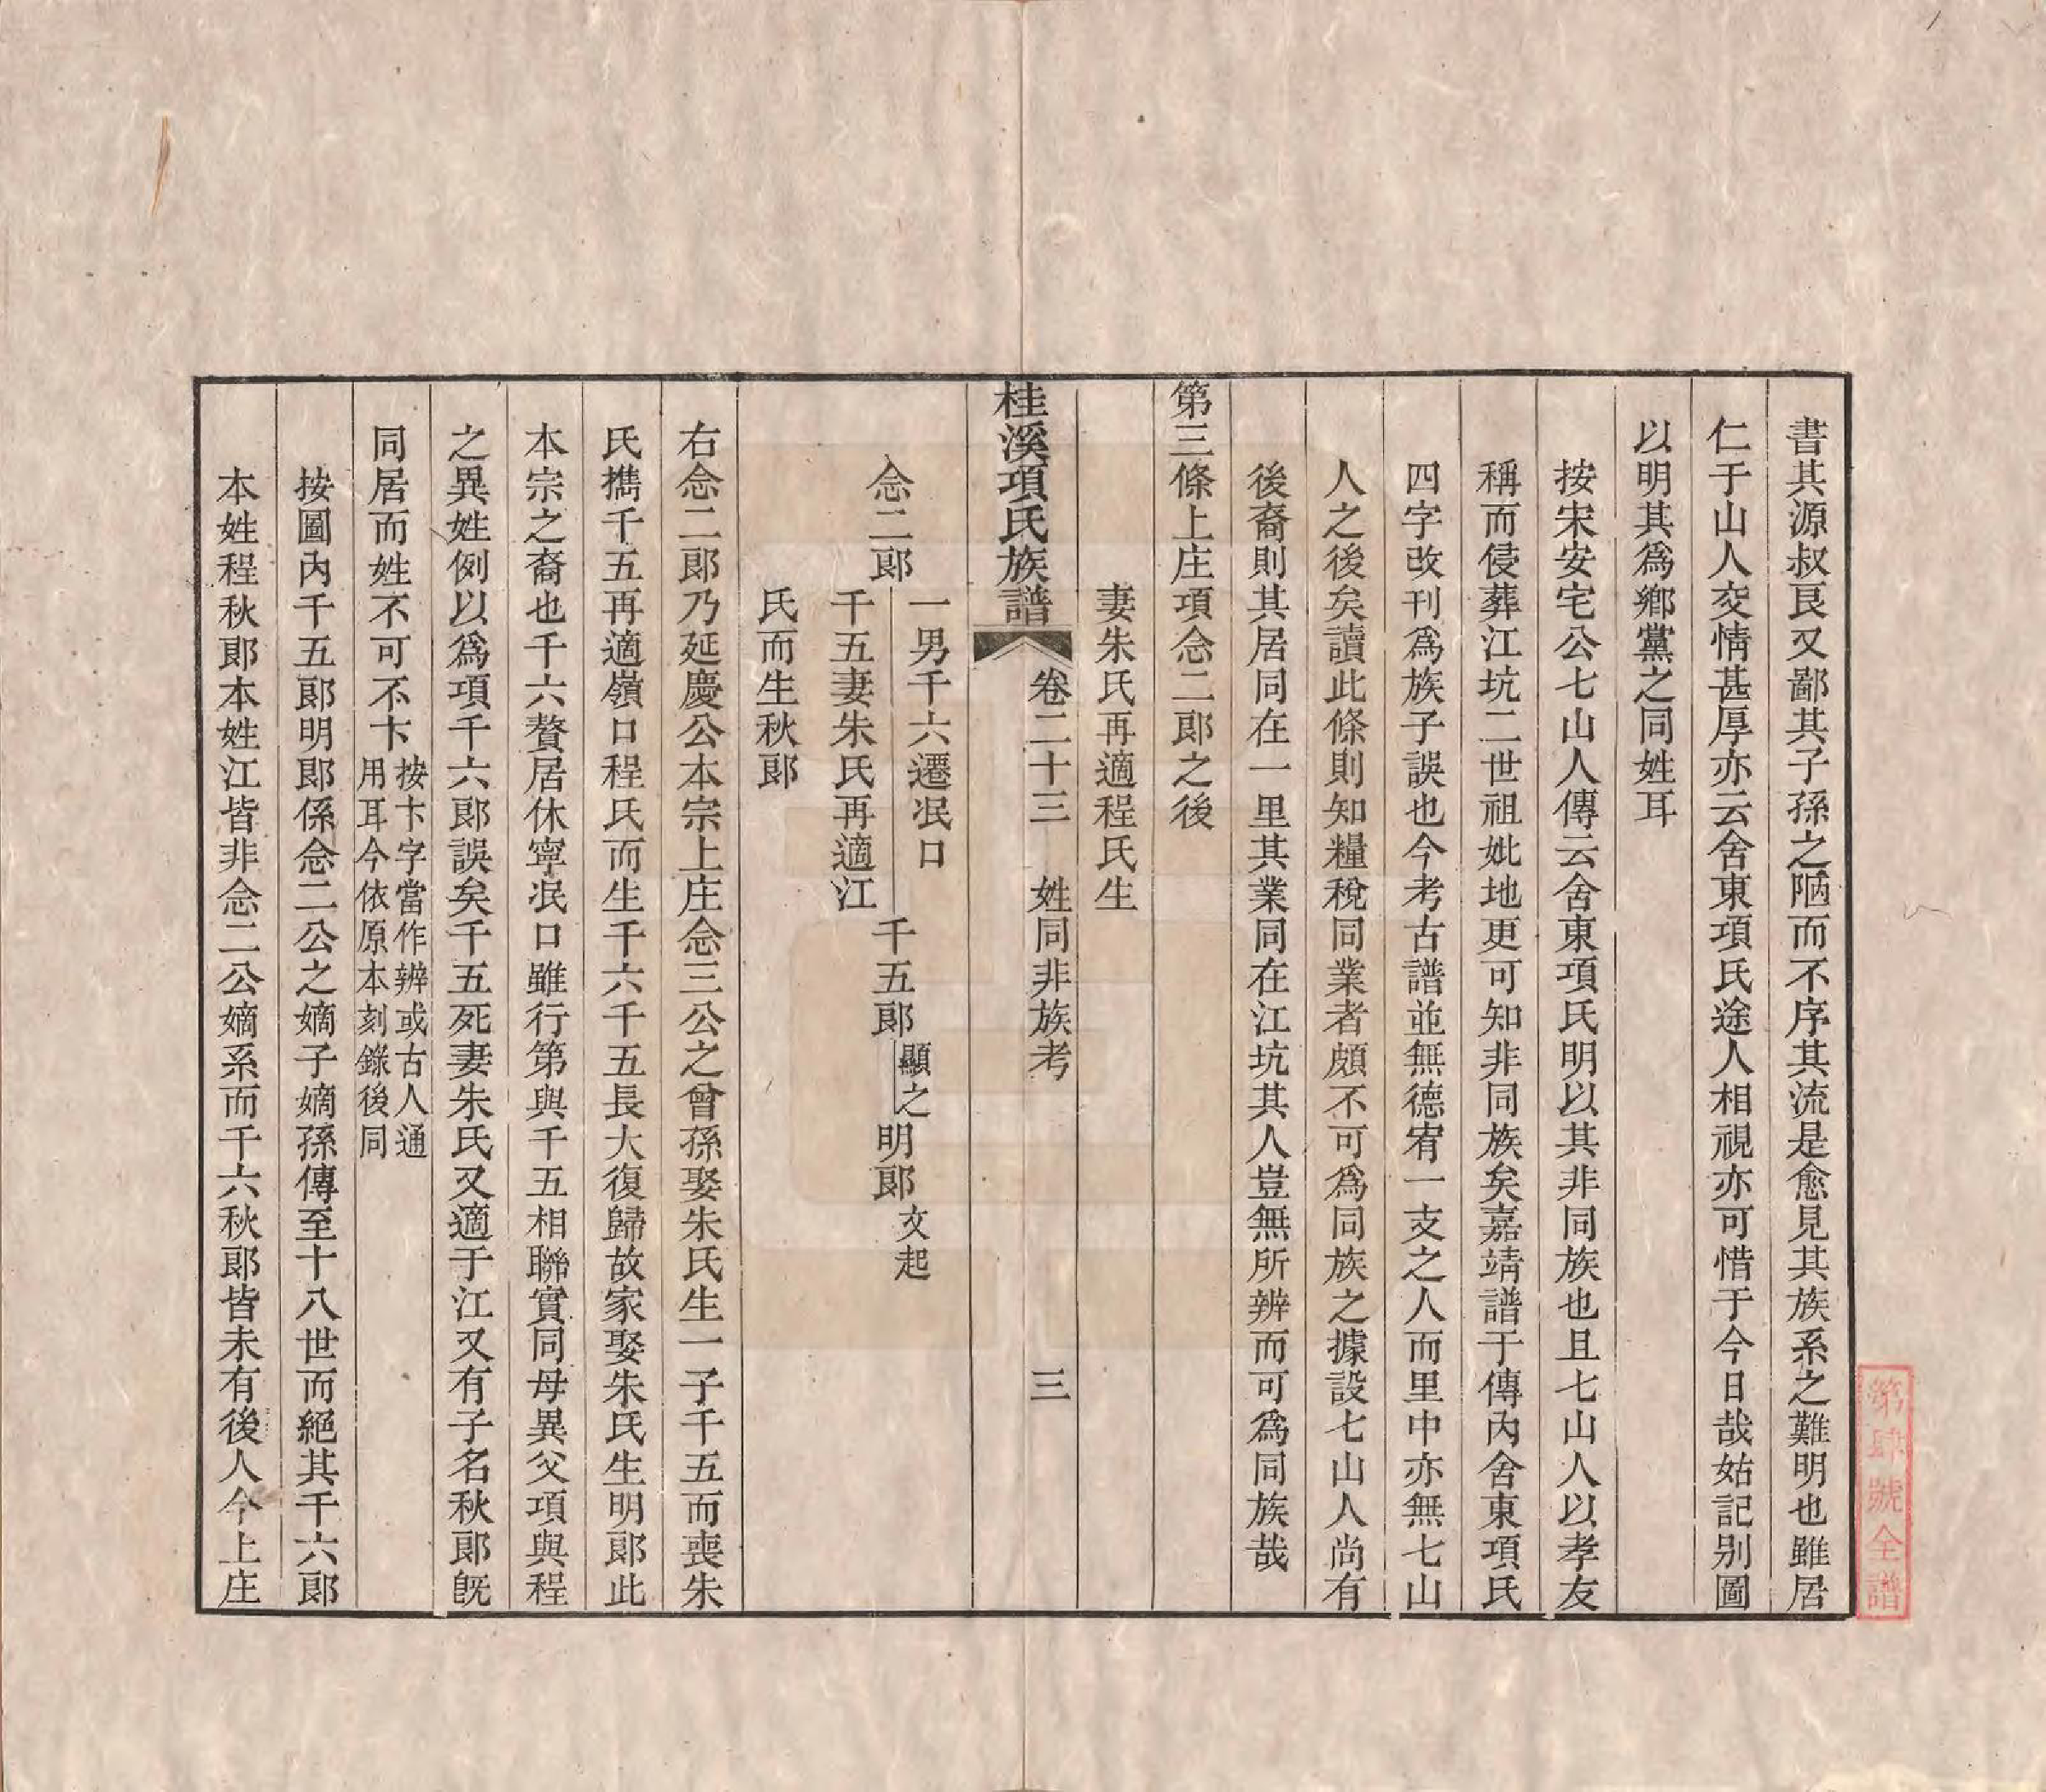 書其源叔良又鄙其子孫之陋而不序其流是愈見其族系之難明也雖居
仁于山人交情甚厚亦云舍東項氏途人相視亦可惜于今日哉姑記别圖
以明其爲鄉黨之同姓耳
按宋安宅公七山人傳云舍東項氏明以其非同族也且七山人以孝友
稱而侵葬江坑二世祖妣地更可知非同族矣嘉靖譜于傳內舍東項氏
四字改刊爲族子誤也今考古譜並無德宥一支之人而里中亦無七山
人之後矣讀此條則知糧稅同業者頗不可爲同族之據設七山人尚有
後裔則其居同在一里其業同在江坑其人豈無所辨而可爲同族哉
第三條上庄項念二郎之後
妻朱氏再適程氏生
桂溪項氏族譜
卷二十三
姓同非族考
三
一男千六遷泯口
念二郎
千五妻朱氏再適江
氏而生秋郎
千五郎
顯之
明郎
文起
右念二郎乃延慶公本宗上庄念三公之曾孫娶朱氏生一子千五而喪朱
氏擕千五再適嶺口程氏而生千六千五長大復歸故家娶朱氏生明郎此
本宗之裔也千六贅居休寧泯口雖行第與千五相聯實同母異父項與程
之異姓例以爲項千六郎誤矣千五死妻朱氏又適于江又有子名秋郎旣
同居而姓不可不卞
按卞字當作辨或古人通
用耳今依原本刻錄後同
按圖內千五郎明郎係念二公之嫡子嫡孫傳至十八世而絕其千六郎
本姓程秋郎本姓江皆非念二公嫡系而千六秋郎皆未有後人今上庄
第肆號全譜